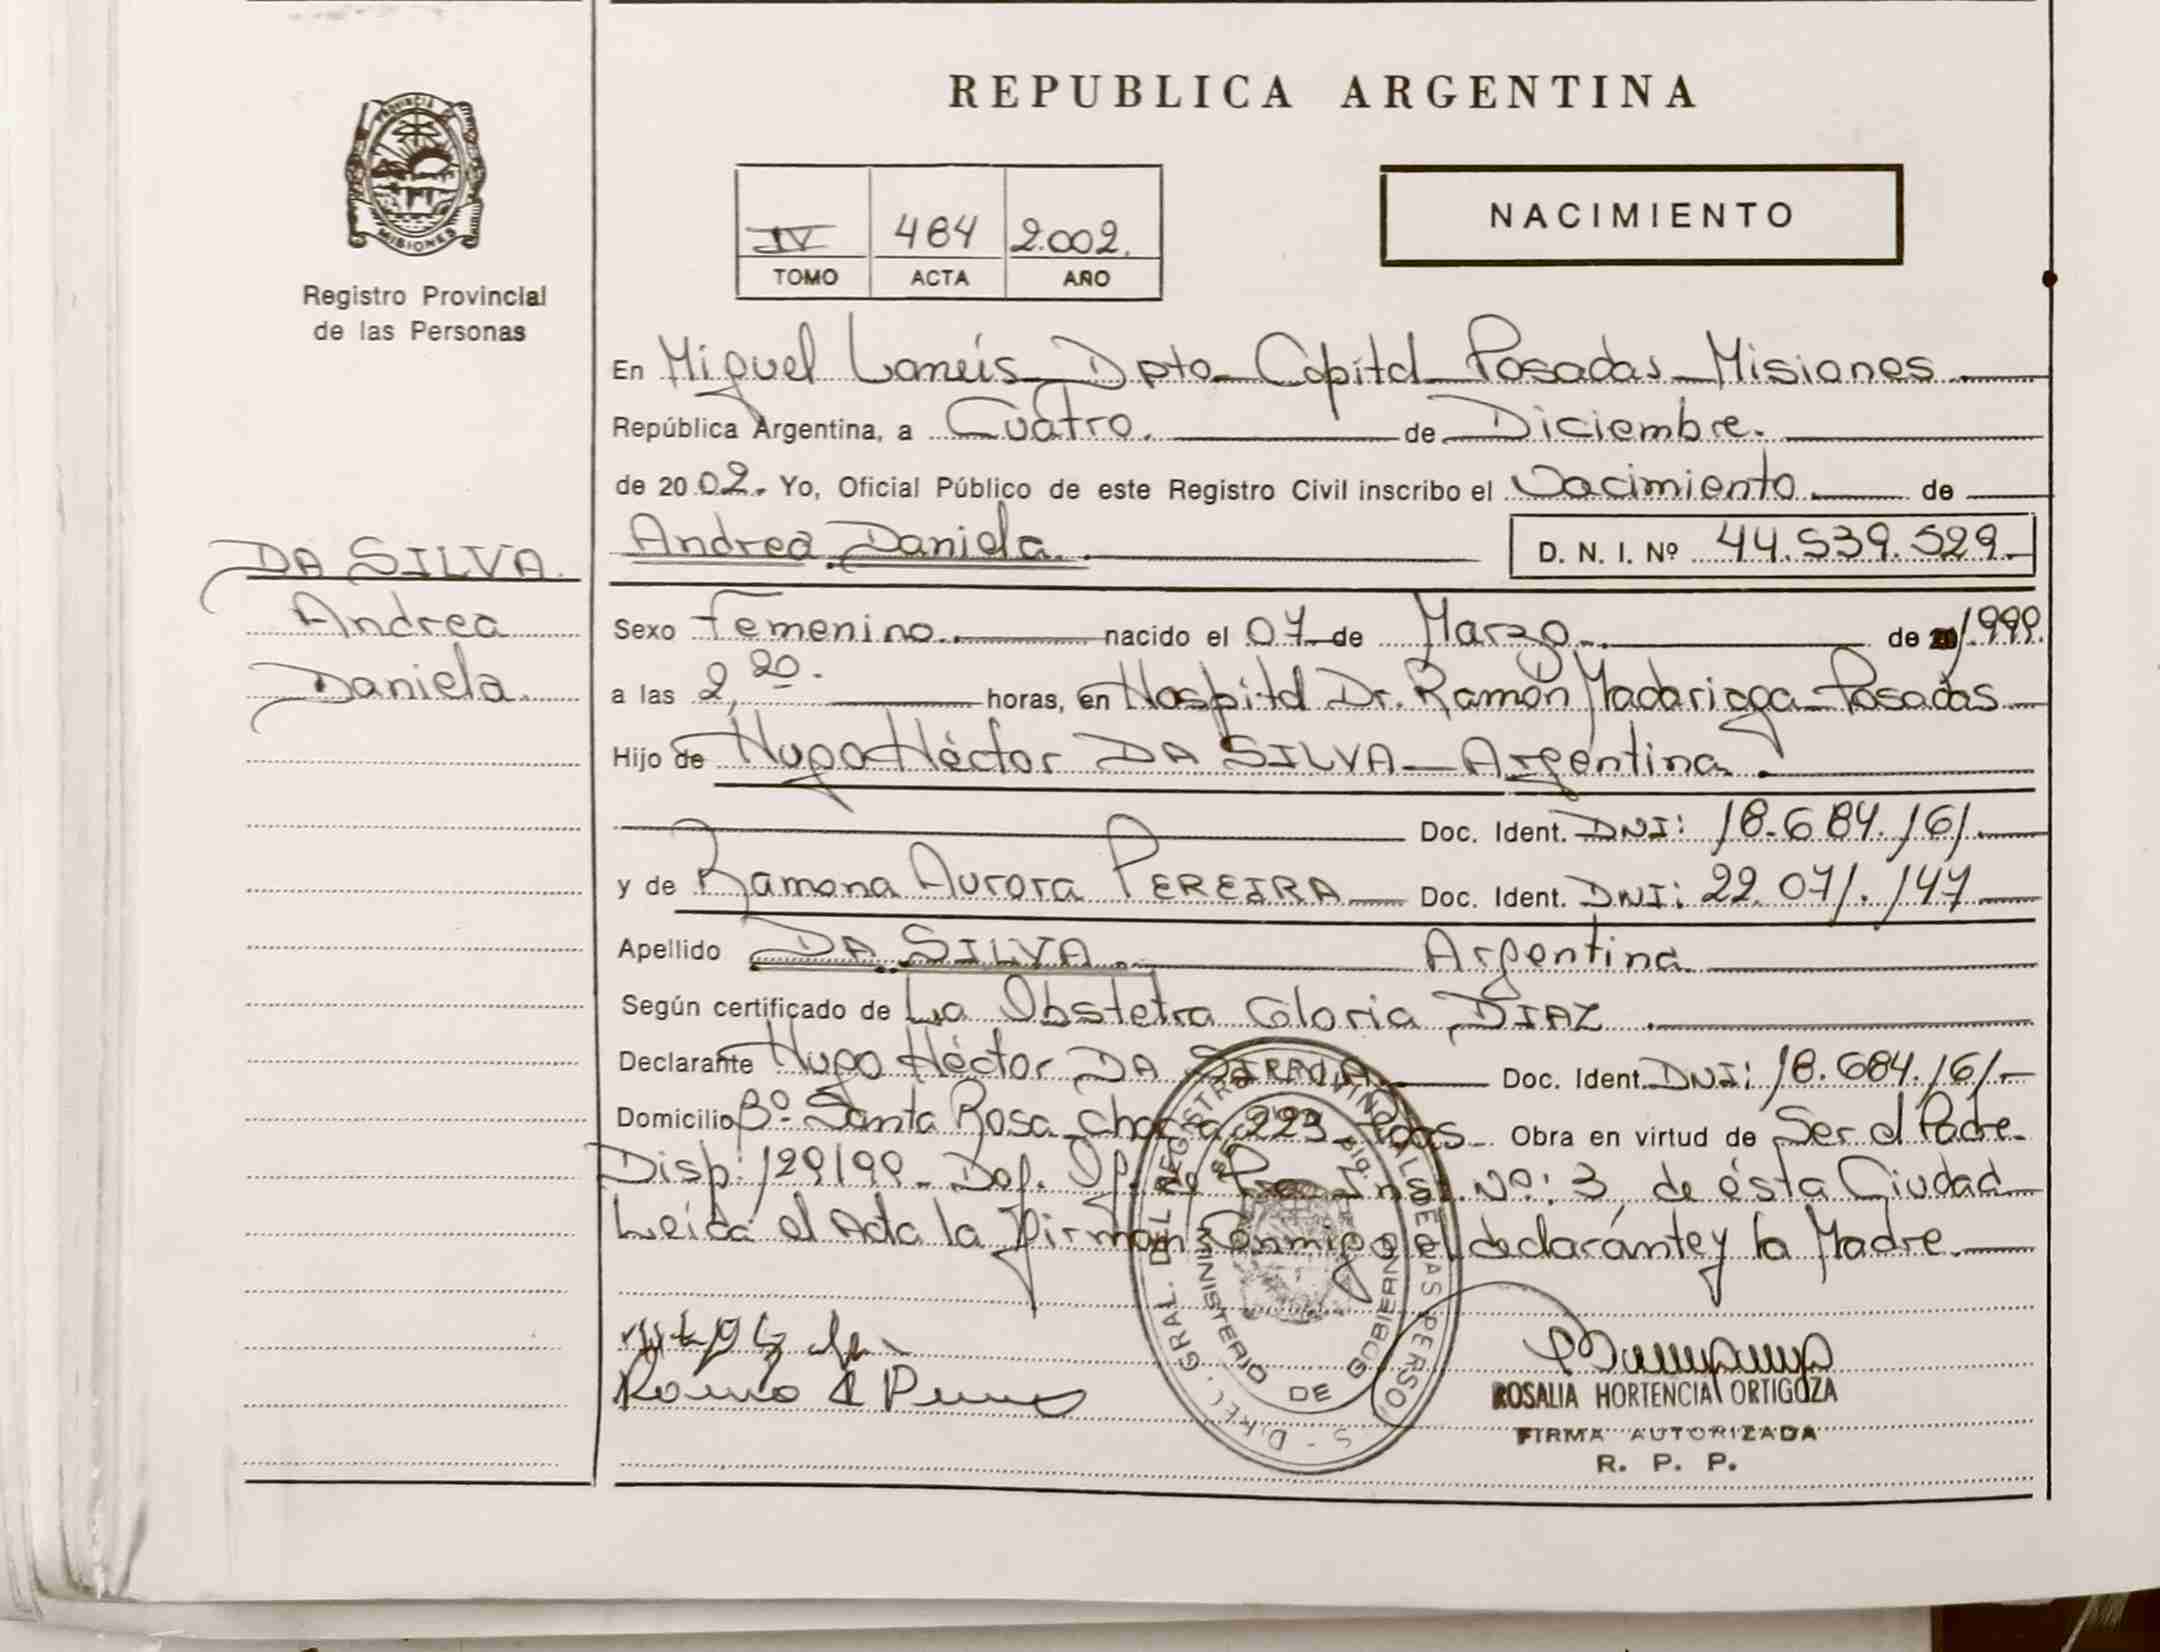 REPUBLICA ARGENTINA
PROVINCIA
MISIONES
Registro Provincial
de las Personas
IV 484 2.002.
TOMO ACTA AÑO
NACIMIENTO
En Miguel Lanús Dpto Capital Posadas Misiones
República Argentina, a Cuatro. de Diciembre.
de 2002. Yo, Oficial Público de este Registro Civil inscribo el Nacimiento de
Andrea Daniela. D. N. I. Nº 44.539.529.
DA SILVA.
Andrea
Daniela.
Sexo Femenino. nacido el 07 de Marzo. de 1999.
a las 2,20. horas, en Hospital Dr. Ramón Madariaga Posadas
Hijo de Hugo Héctor DA SILVA Argentina.
Doc. Ident. DNI: 18.684.161
y de Ramona Aurora PEREIRA Doc. Ident. DNI: 22.071.147
Apellido DA SILVA. Argentina
Según certificado de La Obstetra Gloria DIAZ
Declarante Hugo Héctor DA SILVA Doc. Ident. DNI: 18.684.161
Domicilio Bº Santa Rosa chacra 223 Pdas Obra en virtud de Ser el Padre
Disp: 129/99 Def. Of. de Pra Inst. Nº: 3, de ésta Ciudad
Leída el Acta la firman Conmigo el declaránte y la Madre.
GRAL. DEL REGISTRO PROVINCIAL DE LAS PERSO
MINISTERIO DE GOBIERNO
ROSALIA HORTENCIA ORTIGOZA
FIRMA AUTORIZADA
R. P. P.